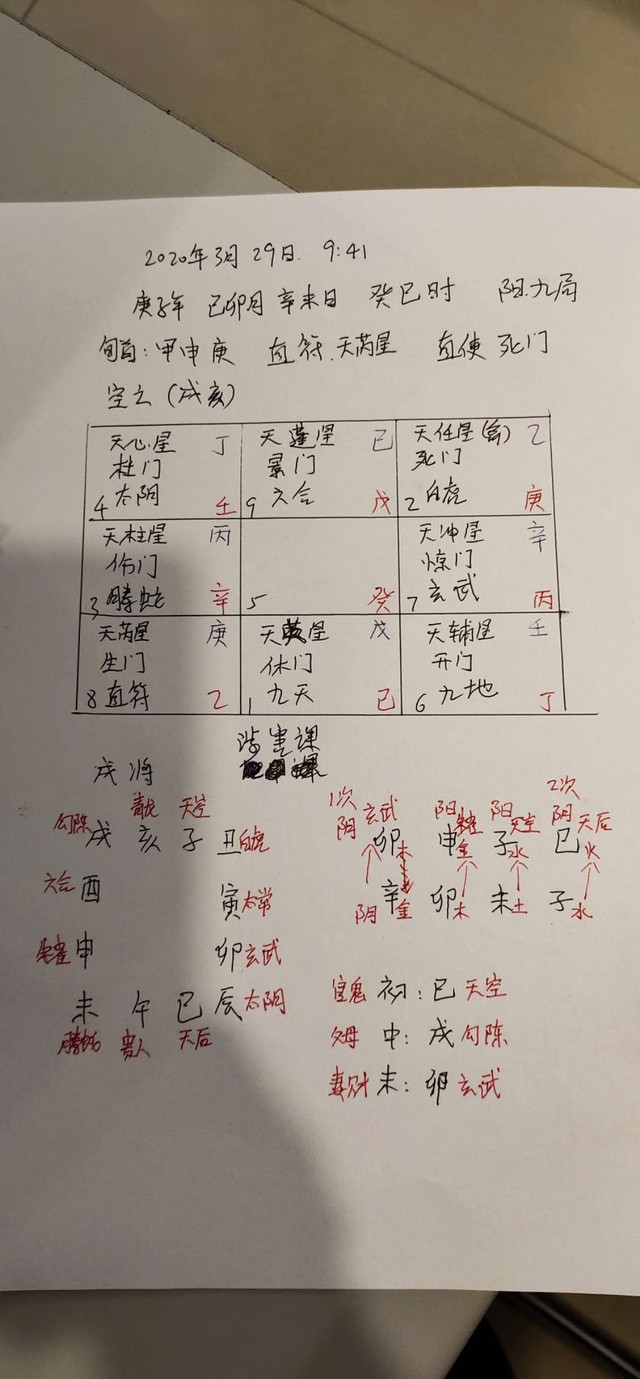 2020年3月29日. 9:41
庚子年 己卯月 辛未日 癸巳时 阳.九局
旬首:甲申庚 直符.天芮星 直使 死门
空亡(戌亥)
天心星 丁 天蓬星 己 天任星(禽) 乙
杜门 景门 死门
4 太阴 壬 9 六合 戊 2 白虎 庚
天柱星 丙 天冲星 辛
伤门 惊门
3 腾蛇 辛 5 癸 7 玄武 丙
天芮星 庚 天英星 戊 天辅星 壬
生门 休门 开门
8 直符 乙 1 九天 己 6 九地 丁
涉害课
戌将
青龙 天空
勾陈 戌 亥 子 丑 白虎
六合 酉 寅 太常
朱雀 申 卯 玄武
未 午 巳 辰 太阴
腾蛇 贵人 天后
1次 2次
阴 玄武 阳 朱雀 阳 天空 阴 天后
卯木 申金 子水 巳火
阴 辛金 卯木 未土 子水
官鬼 初:巳 天空
父母 中:戌 勾陈
妻财 末:卯 玄武